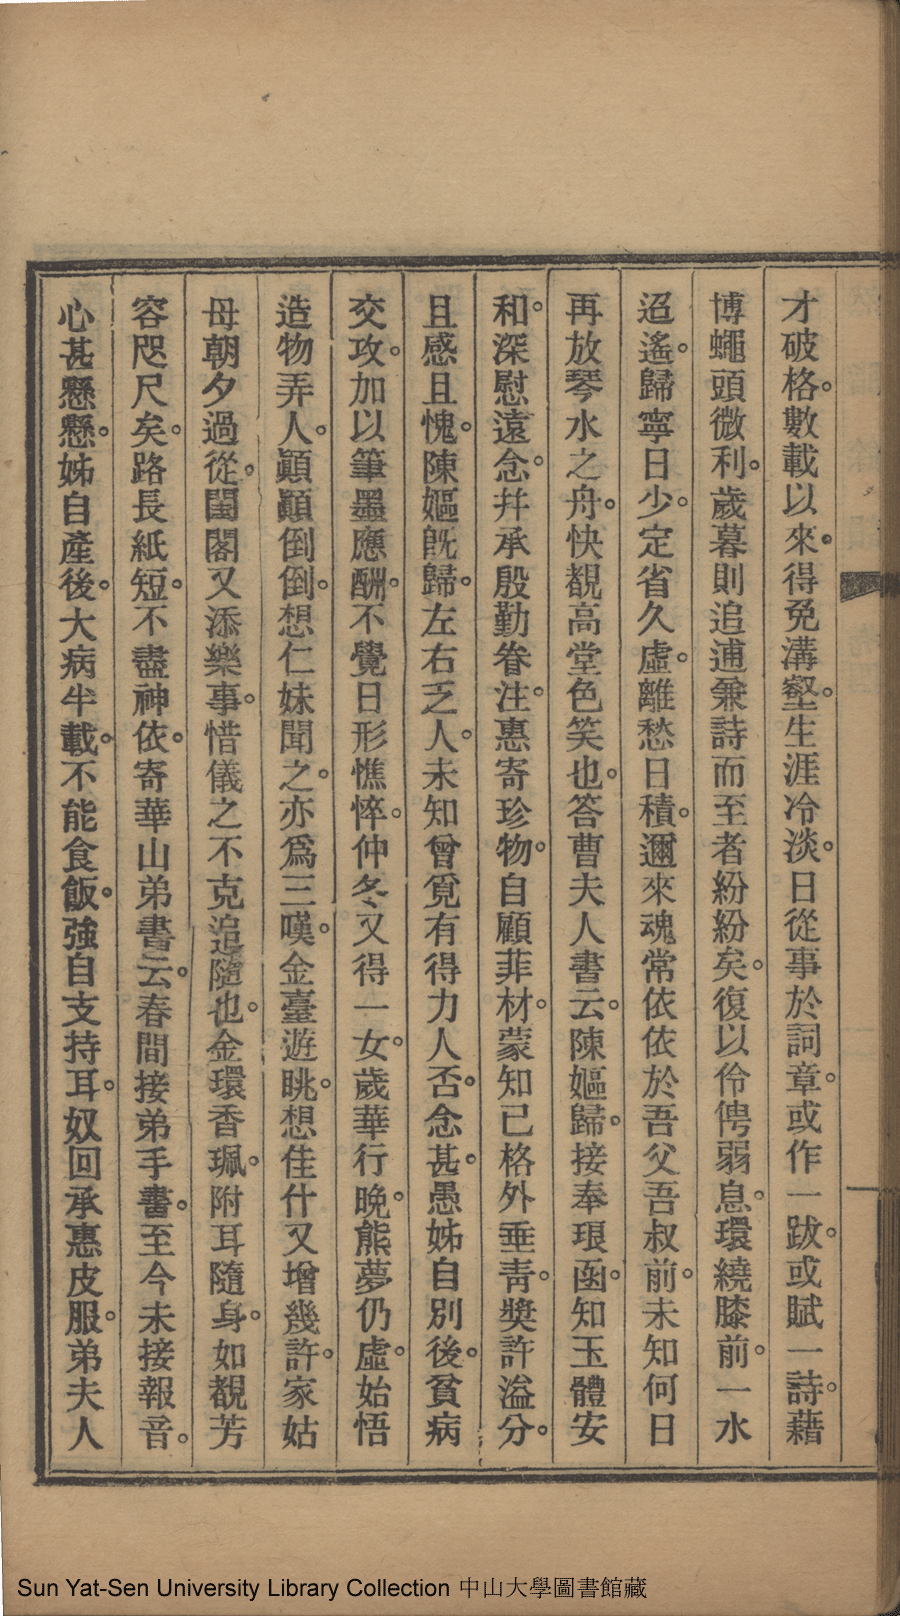 才破格。數載以來。得免溝壑。生涯冷淡。日從事於詞章。或作一跋。或賦一詩。藉
博蠅頭微利。歲暮則追逋兼詩而至者紛紛矣。復以伶俜弱息。環繞膝前。一水
迢遙。歸寧日少。定省久虛。離愁日積。邇來魂常依依於吾父吾叔前。未知何日
再放琴水之舟。快覩高堂色笑也。答曹夫人書云。陳嫗歸。接奉琅函。知玉體安
和。深慰遠念。幷承殷勤眷注。惠寄珍物。自顧菲材。蒙知已格外垂靑。獎許溢分。
且感且愧。陳嫗旣歸。左右乏人。未知曾覓有得力人否。念甚。愚姊自別後。貧病
交攻。加以筆墨應酬。不覺日形憔悴。仲冬又得一女。歲華行晚。熊夢仍虛。始悟
造物弄人。顚顚倒倒。想仁妹聞之。亦爲三嘆。金臺遊眺。想佳什又增幾許。家姑
母朝夕過從。閨閣又添樂事。惜儀之不克追隨也。金環香珮。附耳隨身。如覩芳
容咫尺矣。路長紙短。不盡神依。寄華山弟書云。春間接弟手書。至今未接報音。
心甚懸懸。姊自產後。大病半載。不能食飯。強自支持耳。奴回承惠皮服。弟夫人
Sun Yat-Sen University Library Collection 中山大學圖書館藏